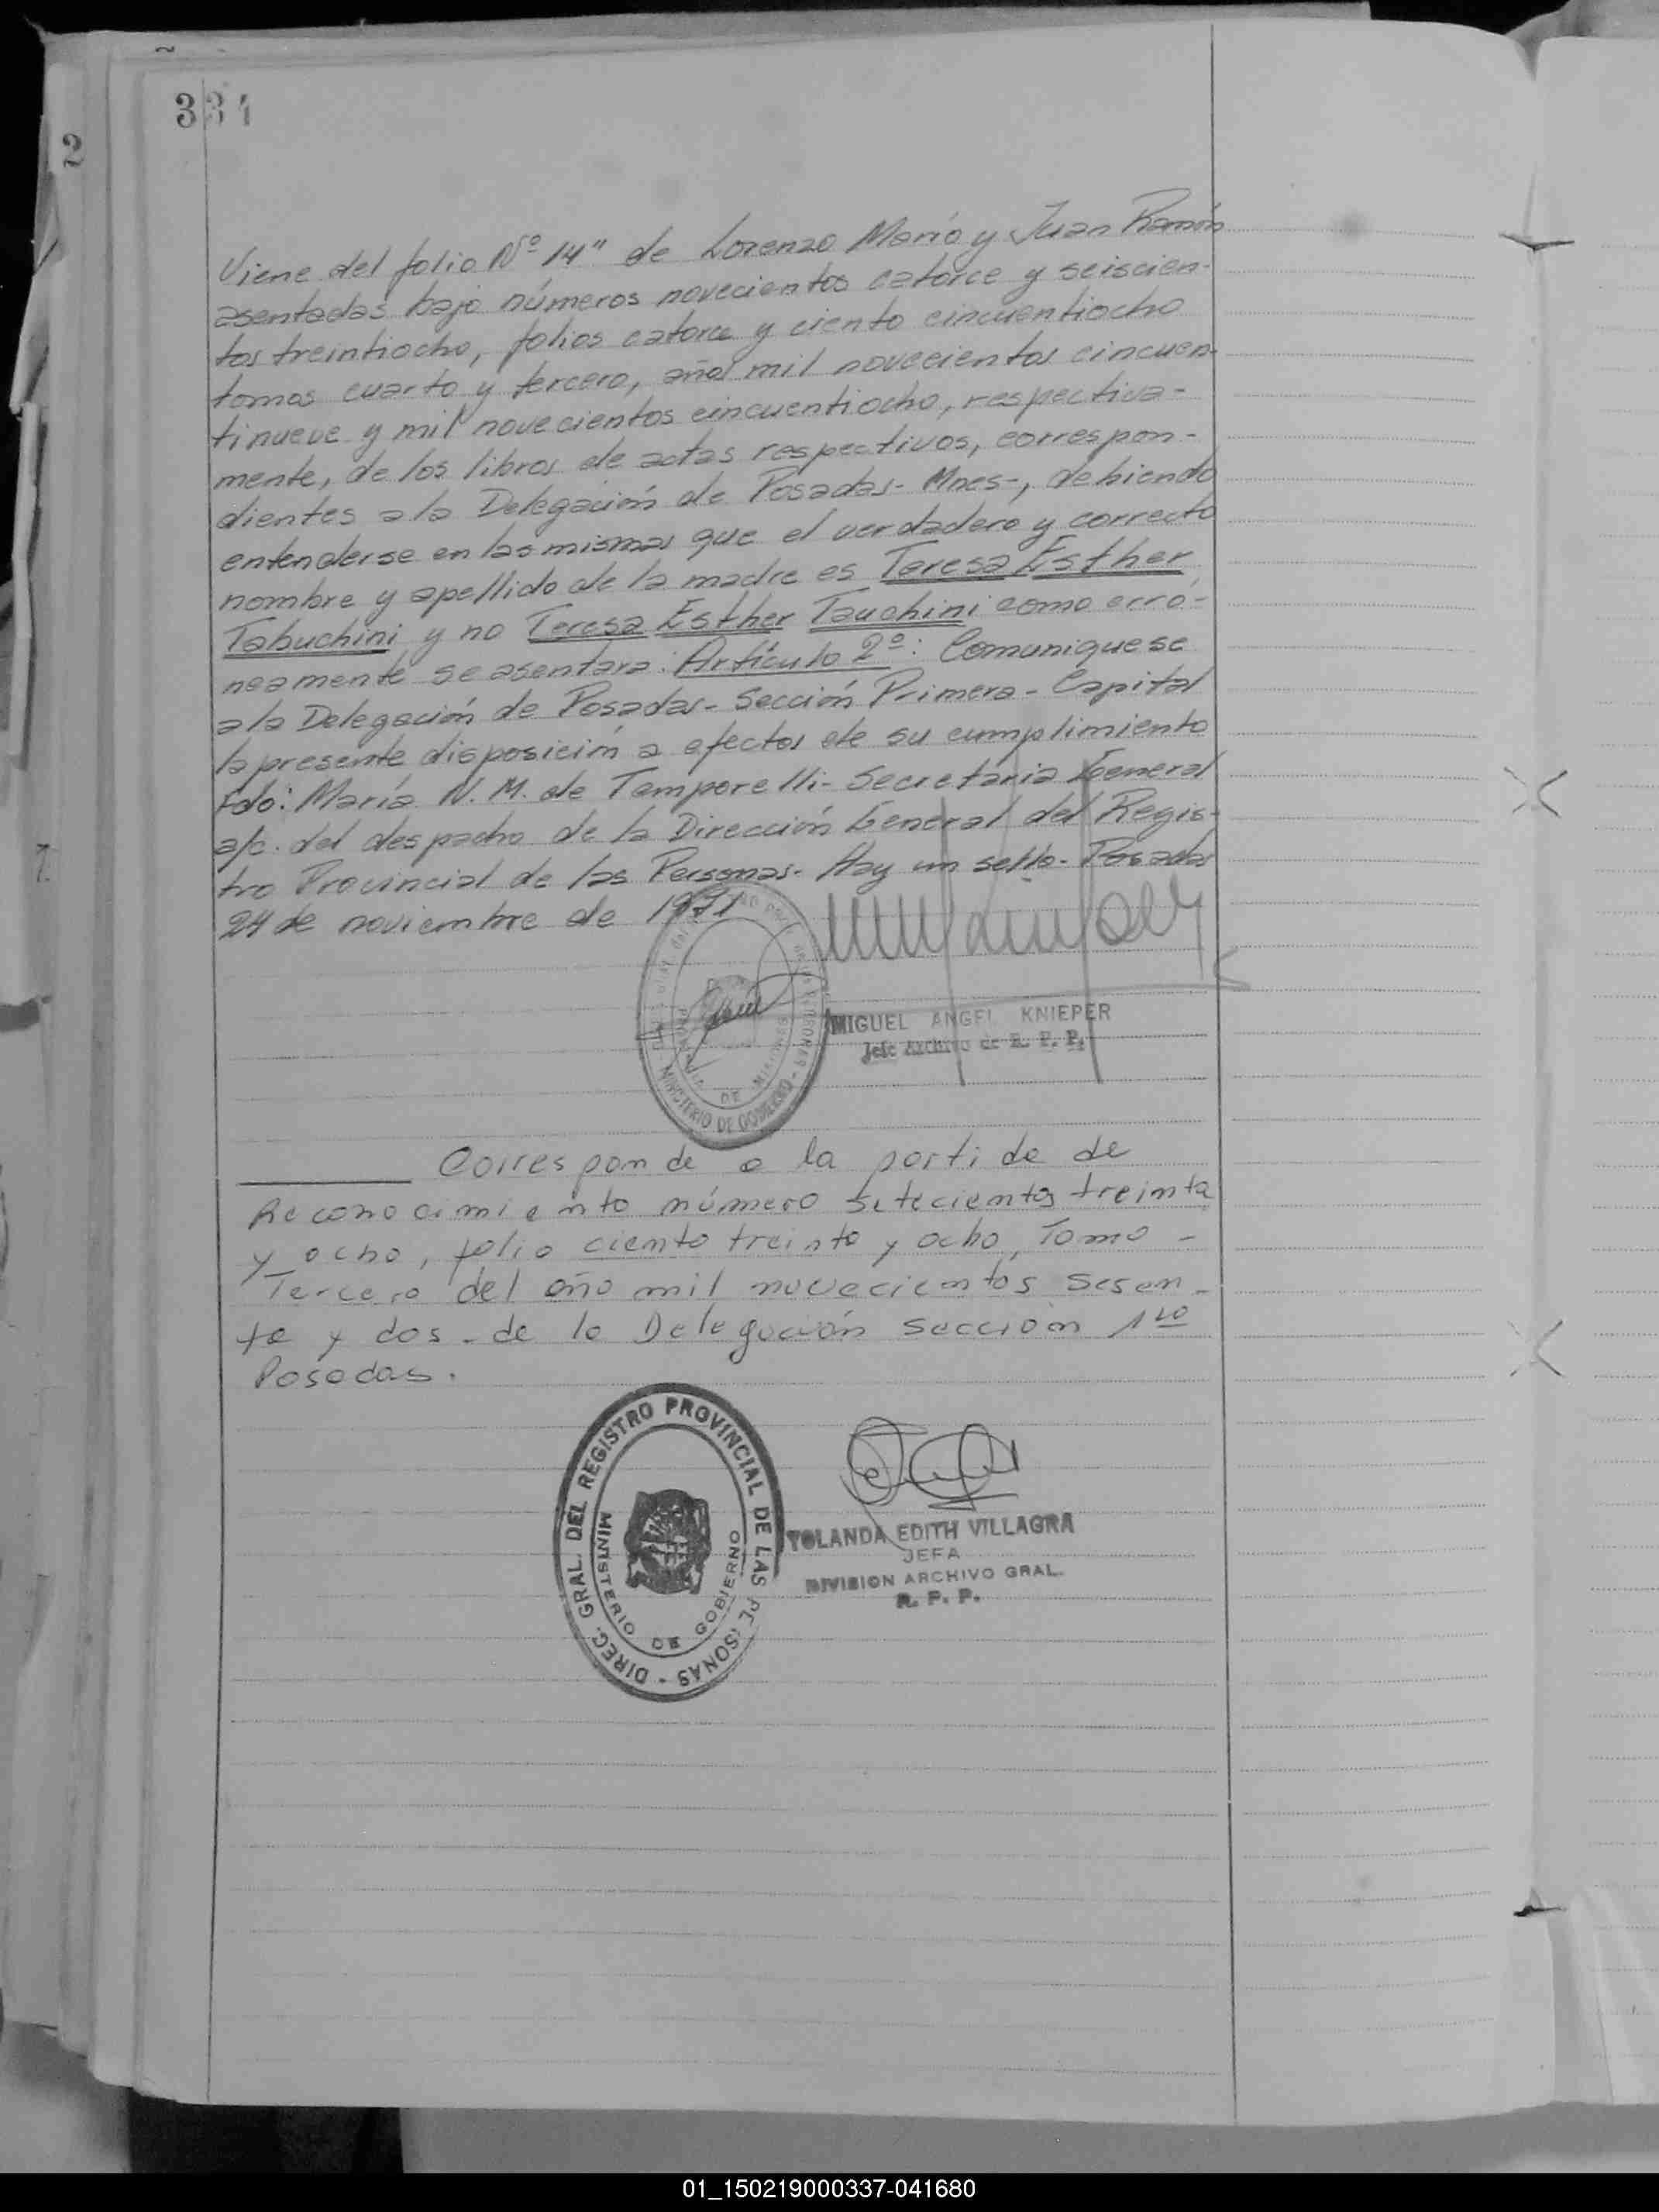 334
2
Viene del folio Nº 14" de Lorenzo Mario y Juan Ramón
asentadas bajo números novecientos catorce y seiscien-
tos treintiocho, folios catorce y ciento cincuentiocho
tomos cuarto y tercero, años mil novecientos cincuen-
tinueve y mil novecientos cincuentiocho, respectiva-
mente, de los libros de actas respectivos, correspon-
dientes a la Delegación de Posadas- Mnes-, debiendo
entenderse en las mismas que el verdadero y correcto
nombre y apellido de la madre es Teresa Esther
Tabuchini y no Teresa Esther Tauchini como erro-
neamente se asentara. Artículo 2º: Comuniquese
a la Delegación de Posadas- Sección Primera- Capital
la presente disposición a efectos de su cumplimiento
Fdo: María N. M. de Temporelli- Secretaria General
a/c. del despacho de la Dirección General del Regis-
tro Provincial de las Personas- Hay un sello- Posadas
24 de noviembre de 1971
MINISTERIO DE GOBIERNO
PROVINCIA DE MISIONES
MIGUEL ANGEL KNIEPER
Jefe Archivo de R. P. P.
Corresponde a la partida de
Reconocimiento número setecientos treinta
y ocho, folio ciento treinta y ocho, Tomo -
Tercero del año mil novecientos sesen-
ta y dos - de la Delegación sección 1ra
Posadas.
DIREC. GRAL. DEL REGISTRO PROVINCIAL DE LAS PERSONAS -
MINISTERIO DE GOBIERNO
YOLANDA EDITH VILLAGRA
JEFA
DIVISION ARCHIVO GRAL.
R. P. P.
01_150219000337-041680